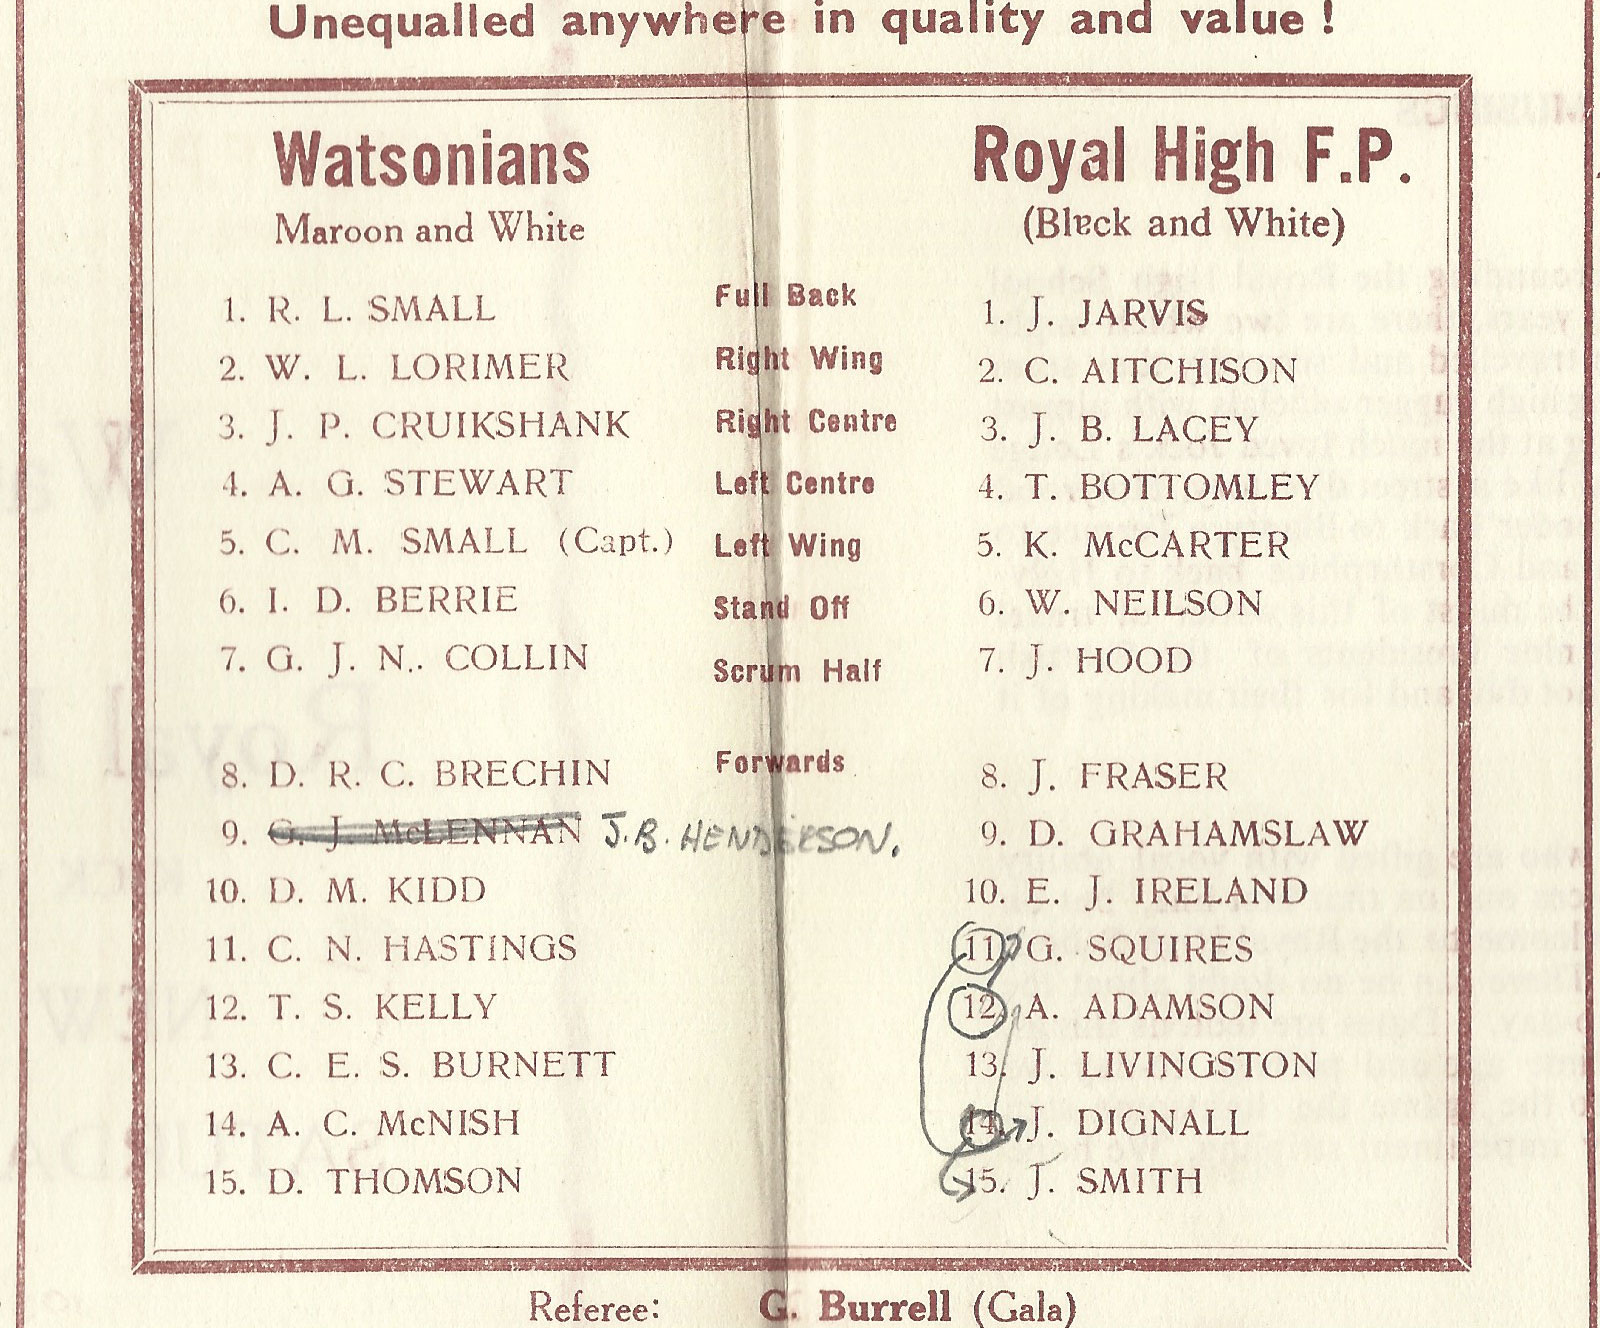 Unequalled anywhere in quality and value !
Watsonians
Maroon and White
Royal High F.P.
(Black and White)
1. R. L. SMALL Full Back 1. J. JARVIS
2. W. L. LORIMER Right Wing 2. C. AITCHISON
3. J. P. CRUIKSHANK Right Centre 3. J. B. LACEY
4. A. G. STEWART Left Centre 4. T. BOTTOMLEY
5. C. M. SMALL (Capt.) Left Wing 5. K. McCARTER
6. I. D. BERRIE Stand Off 6. W. NEILSON
7. G. J. N.. COLLIN Scrum Half 7. J. HOOD
8. D. R. C. BRECHIN Forwards 8. J. FRASER
9. G. J. McLENNAN J.B. HENDERSON. 9. D. GRAHAMSLAW
10. D. M. KIDD 10. E. J. IRELAND
11. C. N. HASTINGS 11. G. SQUIRES
12. T. S. KELLY 12. A. ADAMSON
13. C. E. S. BURNETT 13. J. LIVINGSTON
14. A. C. McNISH 14. J. DIGNALL
15. D. THOMSON 15. J. SMITH
Referee: G. Burrell (Gala)